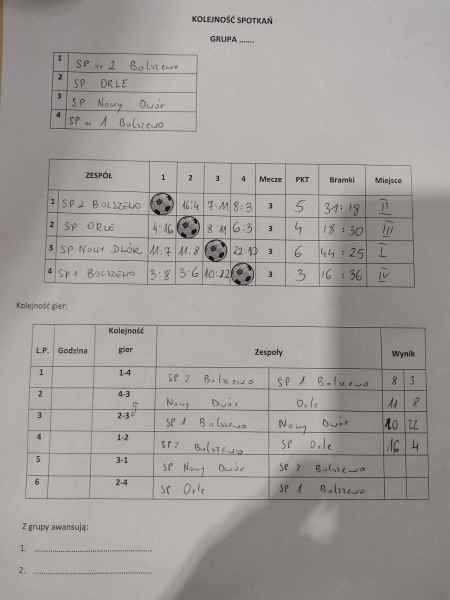 KOLEJNOŚĆ SPOTKAŃ
GRUPA .......
1 SP nr 2 Bolszewo
2 SP ORLE
3 SP Nowy Dwór
4 SP nr 1 Bolszewo
ZESPÓŁ 1 2 3 4 Mecze PKT Bramki Miejsce
1 SP 2 BOLSZEWO 16:4 7:11 8:3 3 5 31:18 II
2 SP ORLE 4:16 8:11 6:3 3 4 18:30 III
3 SP NOWY DWÓR 11:7 11:8 22:10 3 6 44:25 I
4 SP 1 BOLSZEWO 3:8 3:6 10:22 3 3 16:36 IV
Kolejność gier:
L.P. Godzina Kolejność gier Zespoły Wynik
1 1-4 SP 2 Bolszewo SP 1 Bolszewo 8 3
2 4-3 Nowy Dwór Orle 11 8
3 2-3 SP 1 Bolszewo Nowy Dwór 10 22
4 1-2 SP 2 Bolszewo SP Orle 16 4
5 3-1 SP Nowy Dwór SP 2 Bolszewo
6 2-4 SP Orle SP 1 Bolszewo
Z grupy awansują:
1. ..................................................
2. ..................................................